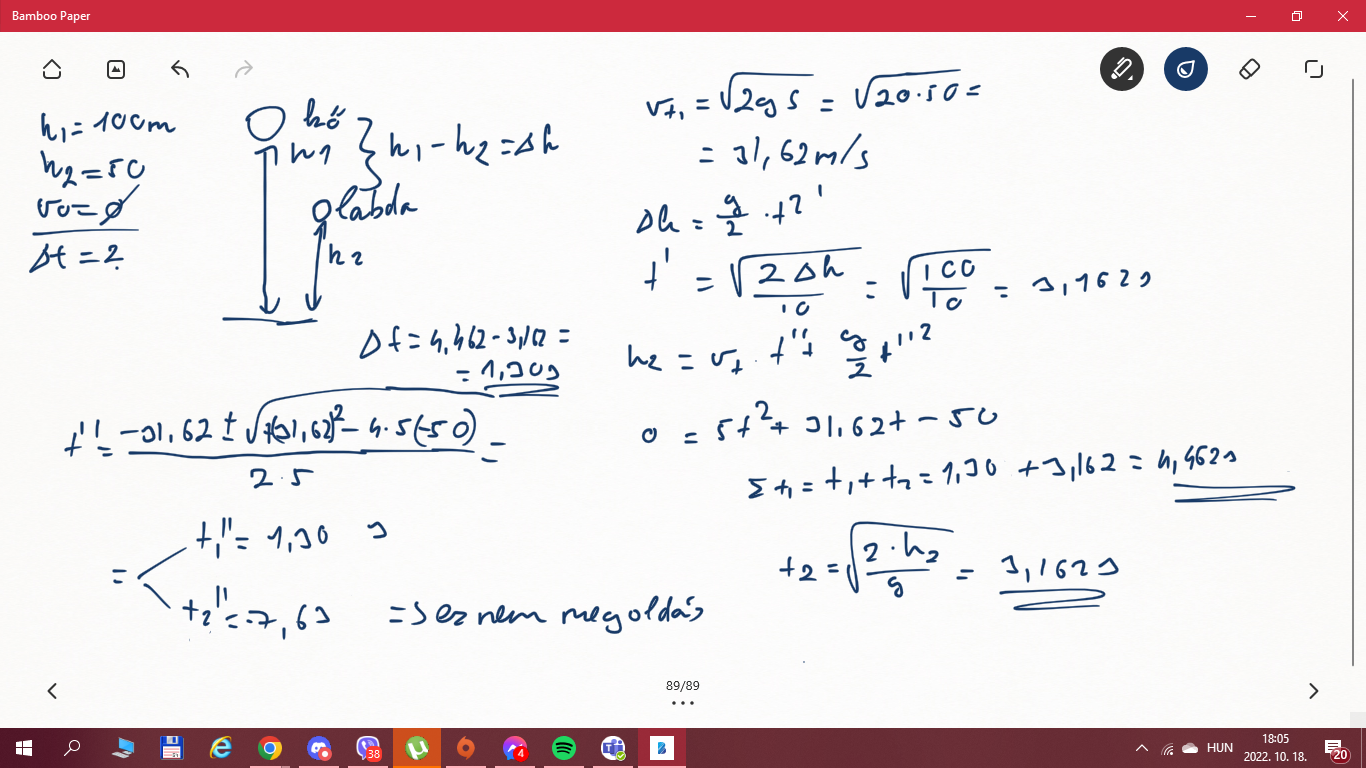 Bamboo Paper
h₁ = 100m
h₂ = 50
v₀ = 0
Δt = ?
kő
h1
h₁ - h₂ = Δh
labda
h₂
Δt = 4,462 - 3,162 =
= 1,30s
t'' = (-31,62 ± √((31,62)² - 4·5(-50))) / (2·5) =
= t₁'' = 1,30 s
t₂'' = -7,63 => ez nem megoldás
v_t₁ = √(2gs) = √(20·50) =
= 31,62 m/s
Δh = g/2 · t²'
t' = √(2Δh/10) = √(100/10) = 3,162s
h₂ = v_t · t'' + g/2 t''²
0 = 5t² + 31,62t - 50
Σt₁ = t₁ + t₂ = 1,30 + 3,162 = 4,462s
t₂ = √(2·h₂/g) = 3,162s
89/89
38
4
HUN
18:05
2022. 10. 18.
20